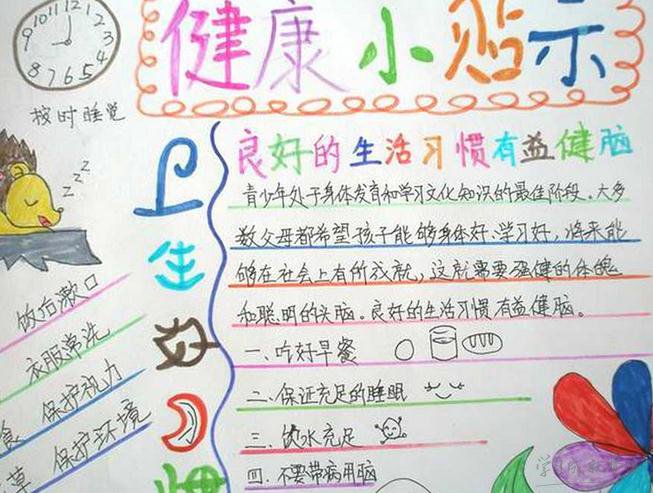 健康小贴示
10 11 12 1 2 3 4 5 6 7 8 9
按时睡觉
zzz
卫生好习惯
良好的生活习惯有益健脑
青少年处于身体发育和学习文化知识的最佳阶段。大多
数父母都希望孩子能够身体好、学习好,将来能
够在社会上有所成就,这就需要强健的体魄
和聪明的头脑。良好的生活习惯有益健脑。
一、吃好早餐
二、保证充足的睡眠
三、饮水充足
四、不要带病用脑
饭后漱口
衣服常洗
食 保护视力
草 保护环境